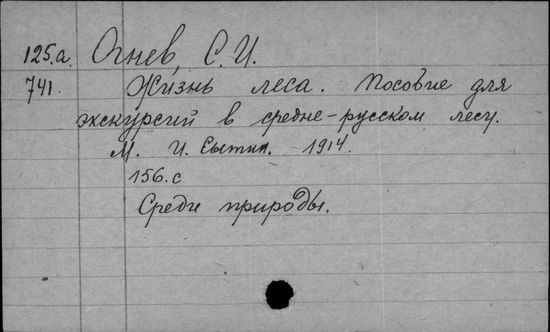 125.a. Огнев, С. И.
741. Жизнь леса. Пособие для
экскурсий в средне-русском лесу.
М. И. Сытин. 1914.
156.с
Среди природы.